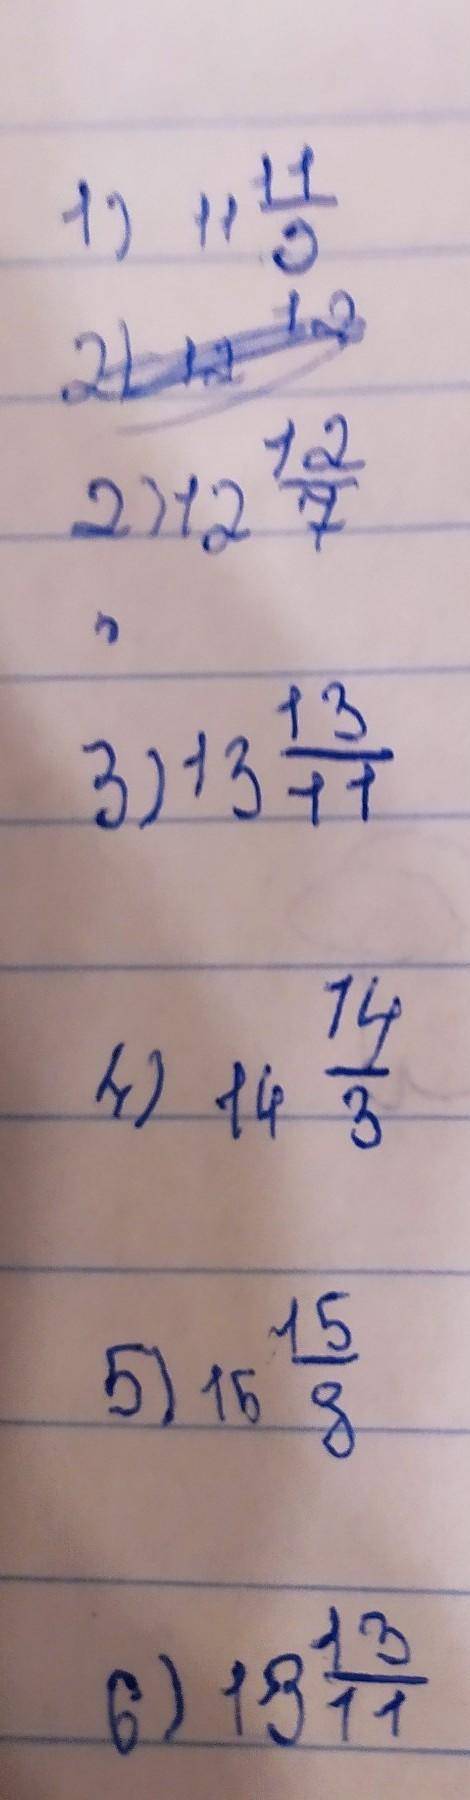 1) 11 11/9
2) 12 12
2) 12 12/7
3) 13 13/11
4) 14 14/3
5) 15 15/8
6) 13/11